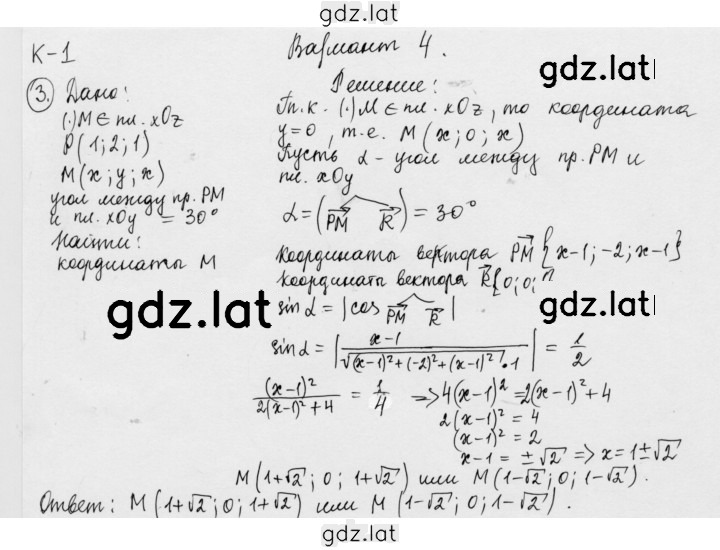 gdz.lat
К-1
Вариант 4.
gdz.lat
3. Дано:
(·)M∈пл. xOz
P(1;2;1)
M(x;y;x)
угол между пр. PM
и пл. xOy = 30°
Найти:
координаты M
Решение:
Т.к. (·)M∈пл. xOz, то координата
y=0, т.е. M(x;0;x)
Пусть α - угол между пр. PM и
пл. xOy
α = (PM R) = 30°
координаты вектора PM {x-1;-2;x-1}
координаты вектора R {0;0;1}
gdz.lat
sin α = |cos PM R|
sin α = |x-1 / √((x-1)²+(-2)²+(x-1)²)·1| = 1/2
(x-1)² / 2(x-1)²+4 = 1/4 => 4(x-1)² = 2(x-1)²+4
2(x-1)² = 4
(x-1)² = 2
x-1 = ±√2 => x = 1±√2
M(1+√2; 0; 1+√2) или M(1-√2; 0; 1-√2).
Ответ: M(1+√2; 0; 1+√2) или M(1-√2; 0; 1-√2).
gdz.lat